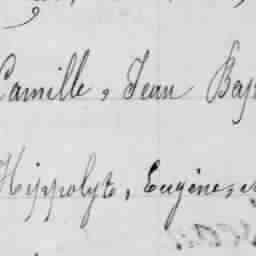 Camille, Jean Bap
Hippolyte, Eugène,